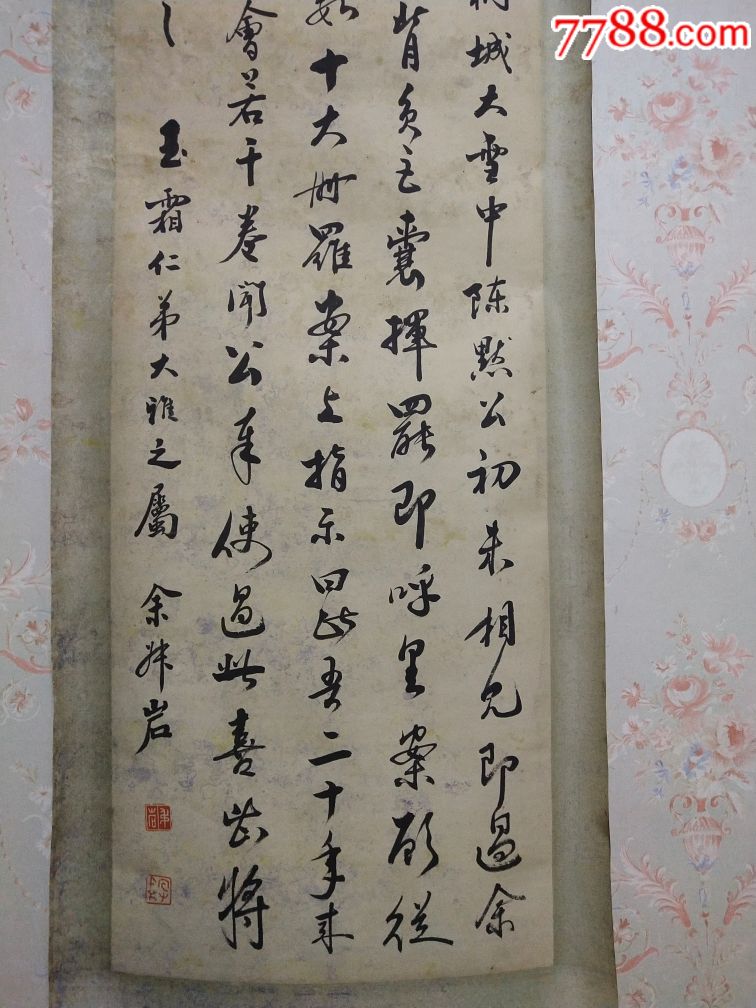 7788.com
城大雪中陈默公初未相见即過余
背負巨囊揮罷即呼里案願從
十大冊羅案上指示曰此吾二十年来
會若干卷聞公奉使過此喜出将
玉霜仁弟大雅之屬
余叔岩